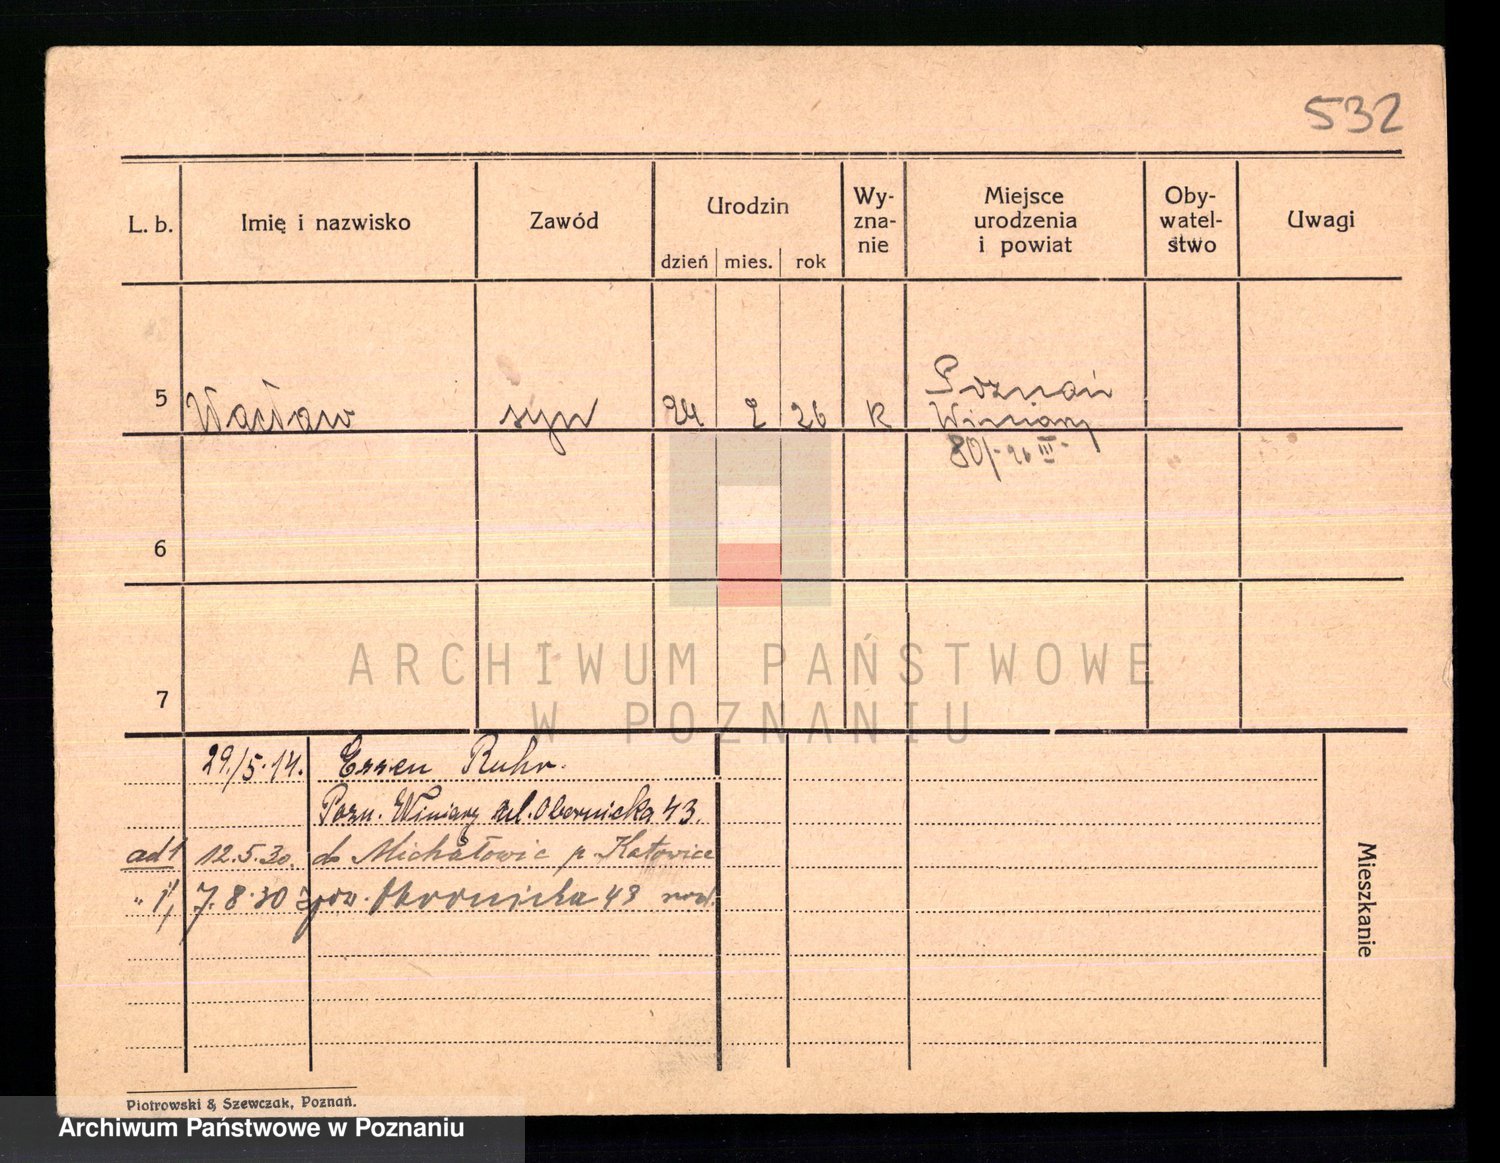 532
L. b. Imię i nazwisko Zawód Urodzin dzień mies. rok Wy-zna-nie Miejsce urodzenia i powiat Oby-watel-stwo Uwagi
5 Wacław syn 24 2 26 K Poznań
Winiary
80/-26 III-
6
7
ARCHIWUM PAŃSTWOWE
W POZNANIU
29/5.14. Essen Ruhr.
Pozn. Winiary ul. Obornicka 43.
ad 1 12.5.30. do Michałowic p. Katowice
" 1/ 7.8.30 Obornicka 43
Mieszkanie
Piotrowski & Szewczak, Poznań.
Archiwum Państwowe w Poznaniu